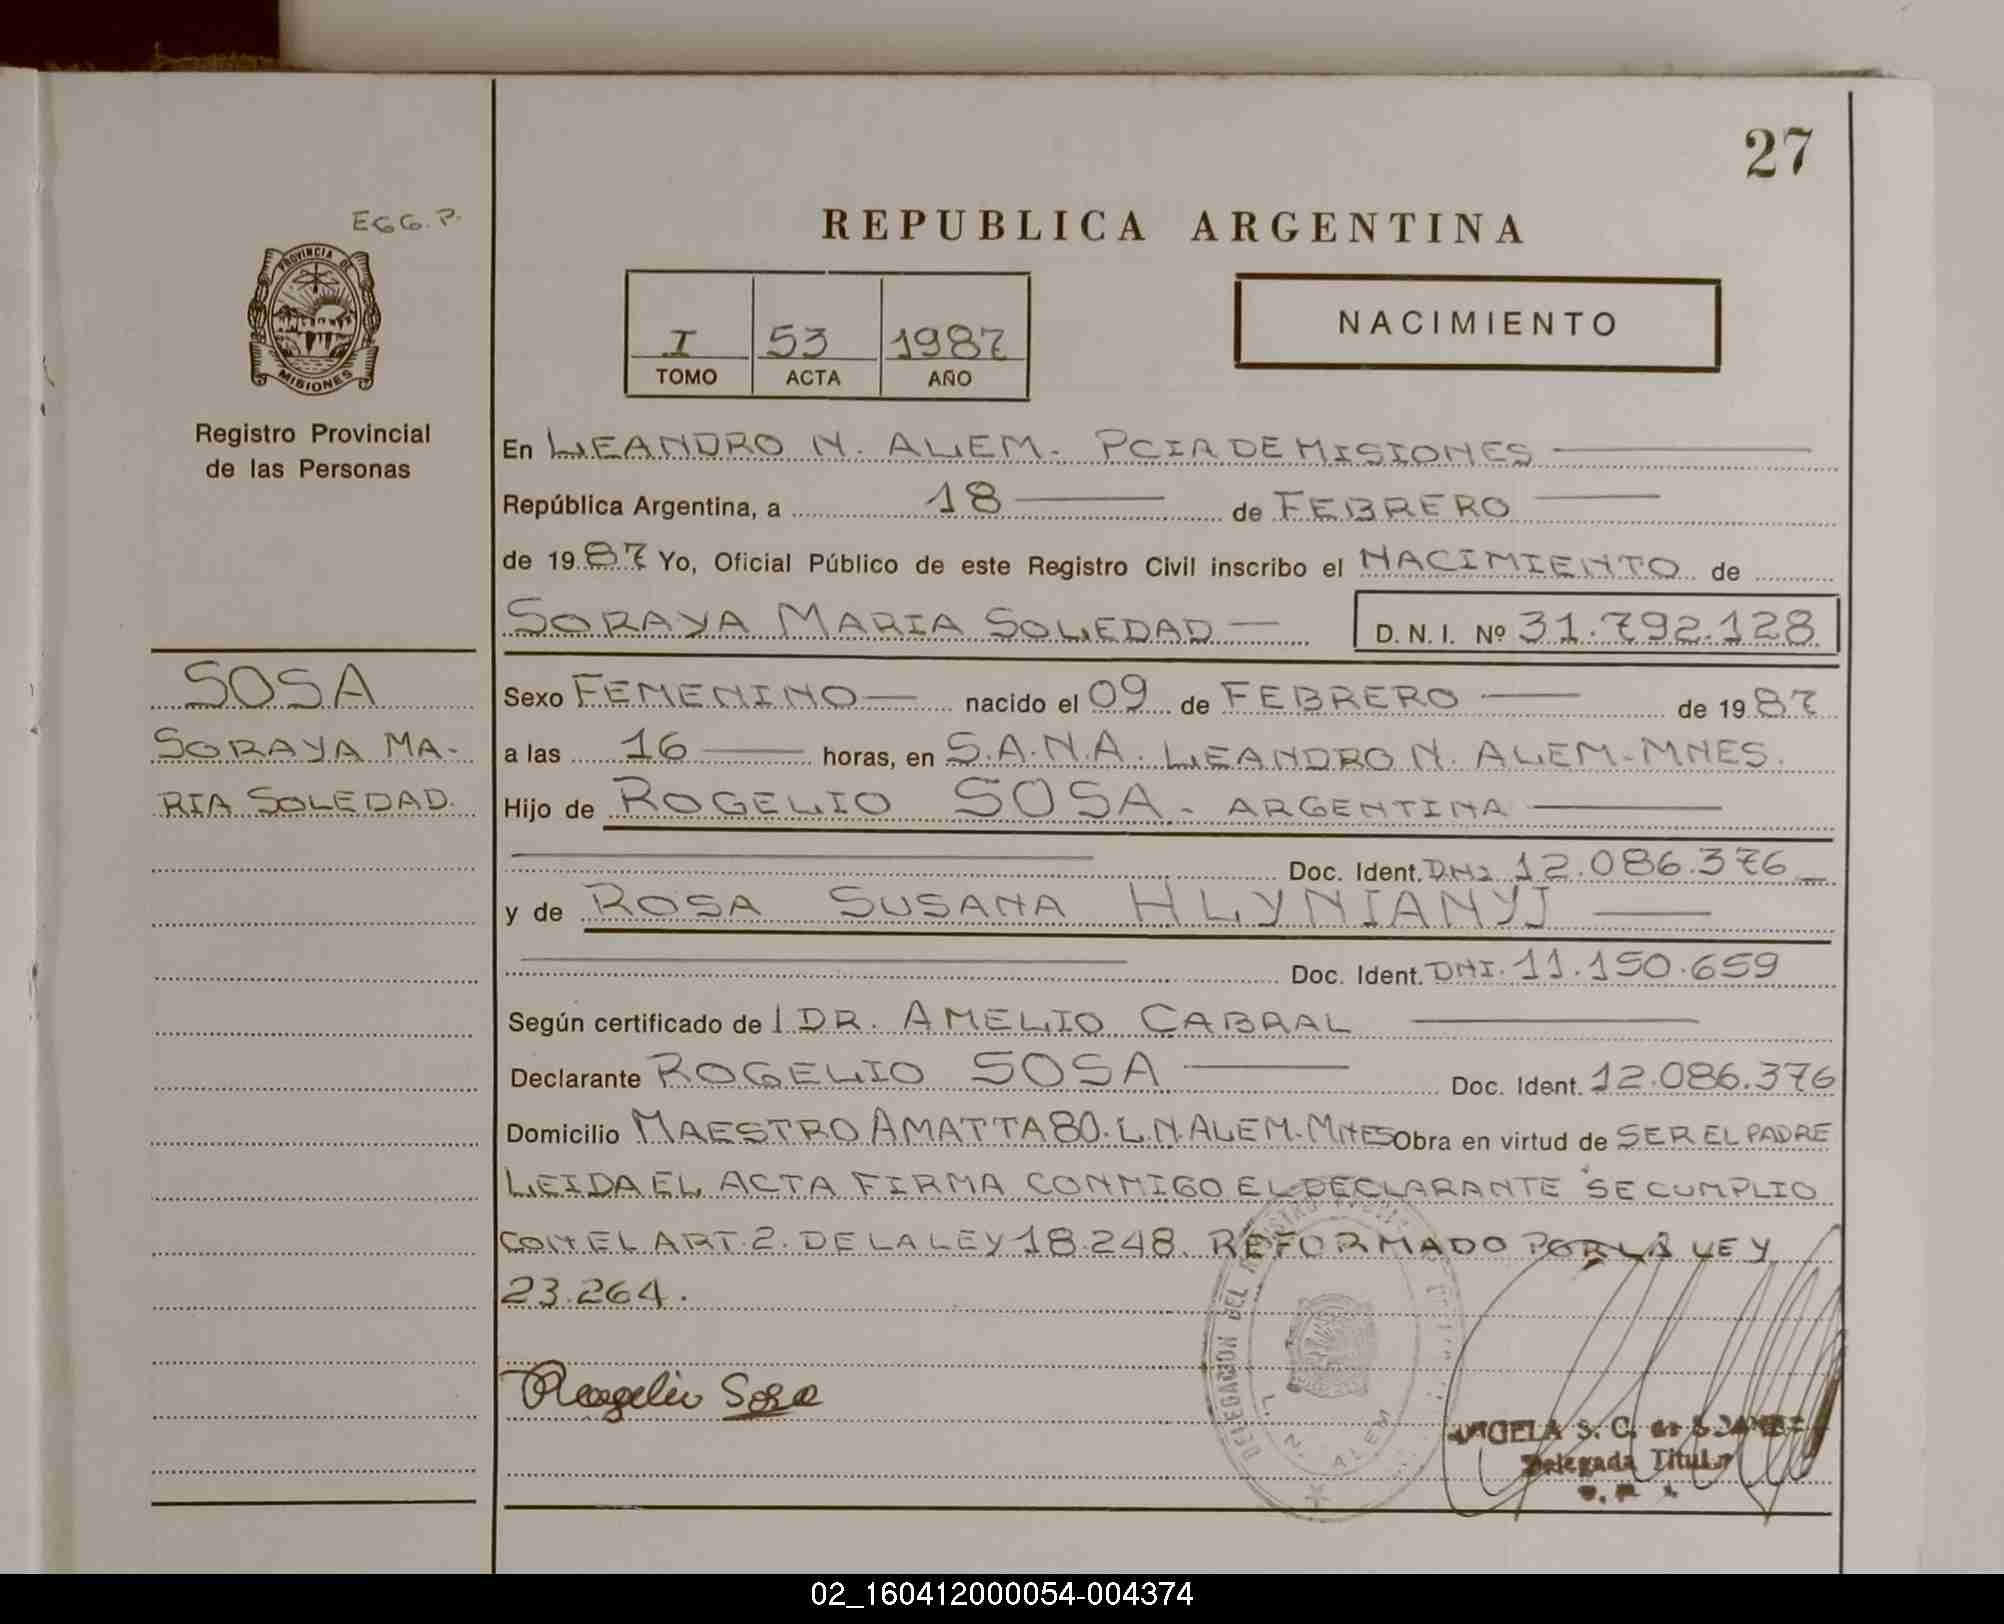 27
EGG.P.
REPUBLICA ARGENTINA
PROVINCIA DE
MISIONES
I 53 1987
TOMO ACTA AÑO
NACIMIENTO
Registro Provincial
de las Personas
En LEANDRO N. ALEM. PCIA DE MISIONES
República Argentina, a 18 de FEBRERO
de 1987 Yo, Oficial Público de este Registro Civil inscribo el NACIMIENTO de
SORAYA MARIA SOLEDAD D. N. I. Nº 31.792.128
SOSA
SORAYA MA-
RIA SOLEDAD.
Sexo FEMENINO nacido el 09 de FEBRERO de 1987
a las 16 horas, en S.A.N.A. LEANDRO N. ALEM-MNES.
Hijo de ROGELIO SOSA - ARGENTINA
Doc. Ident. DNI 12.086.376
y de ROSA SUSANA HLYNIANYJ
Doc. Ident. DNI. 11.150.659
Según certificado de l DR. AMELIO CABRAL
Declarante ROGELIO SOSA Doc. Ident. 12.086.376
Domicilio MAESTRO AMATTA 80. L.N. ALEM. MNES Obra en virtud de SER EL PADRE
LEIDA EL ACTA FIRMA CONMIGO EL DECLARANTE SE CUMPLIO
CON EL ART. 2. DE LA LEY 18.248. REFORMADO POR LA LEY
23.264.
Rogelio Sosa
DELEGACION DEL REGISTRO
L. N. ALEM
S. C. de
Delegada Titular
02_160412000054-004374